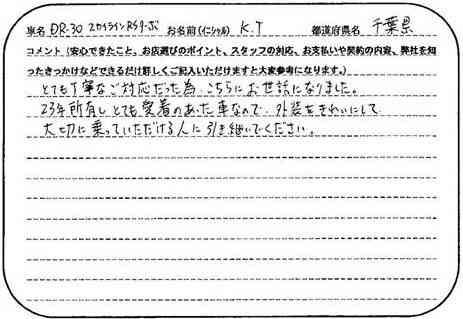 車名 DR-30 スカイラインRSターボ お名前(イニシャル) K.T 都道府県名 千葉県
コメント(安心できたこと、お店選びのポイント、スタッフの対応、お支払いや契約の内容、弊社を知
ったきっかけなどできるだけ詳しくご記入いただけますと大変参考になります。)
とても丁寧なご対応だった為、こちらにお世話になりました。
23年所有しとても愛着のあった車なので、外装をきれいにして
大切に乗っていただける人に引き継いでください。